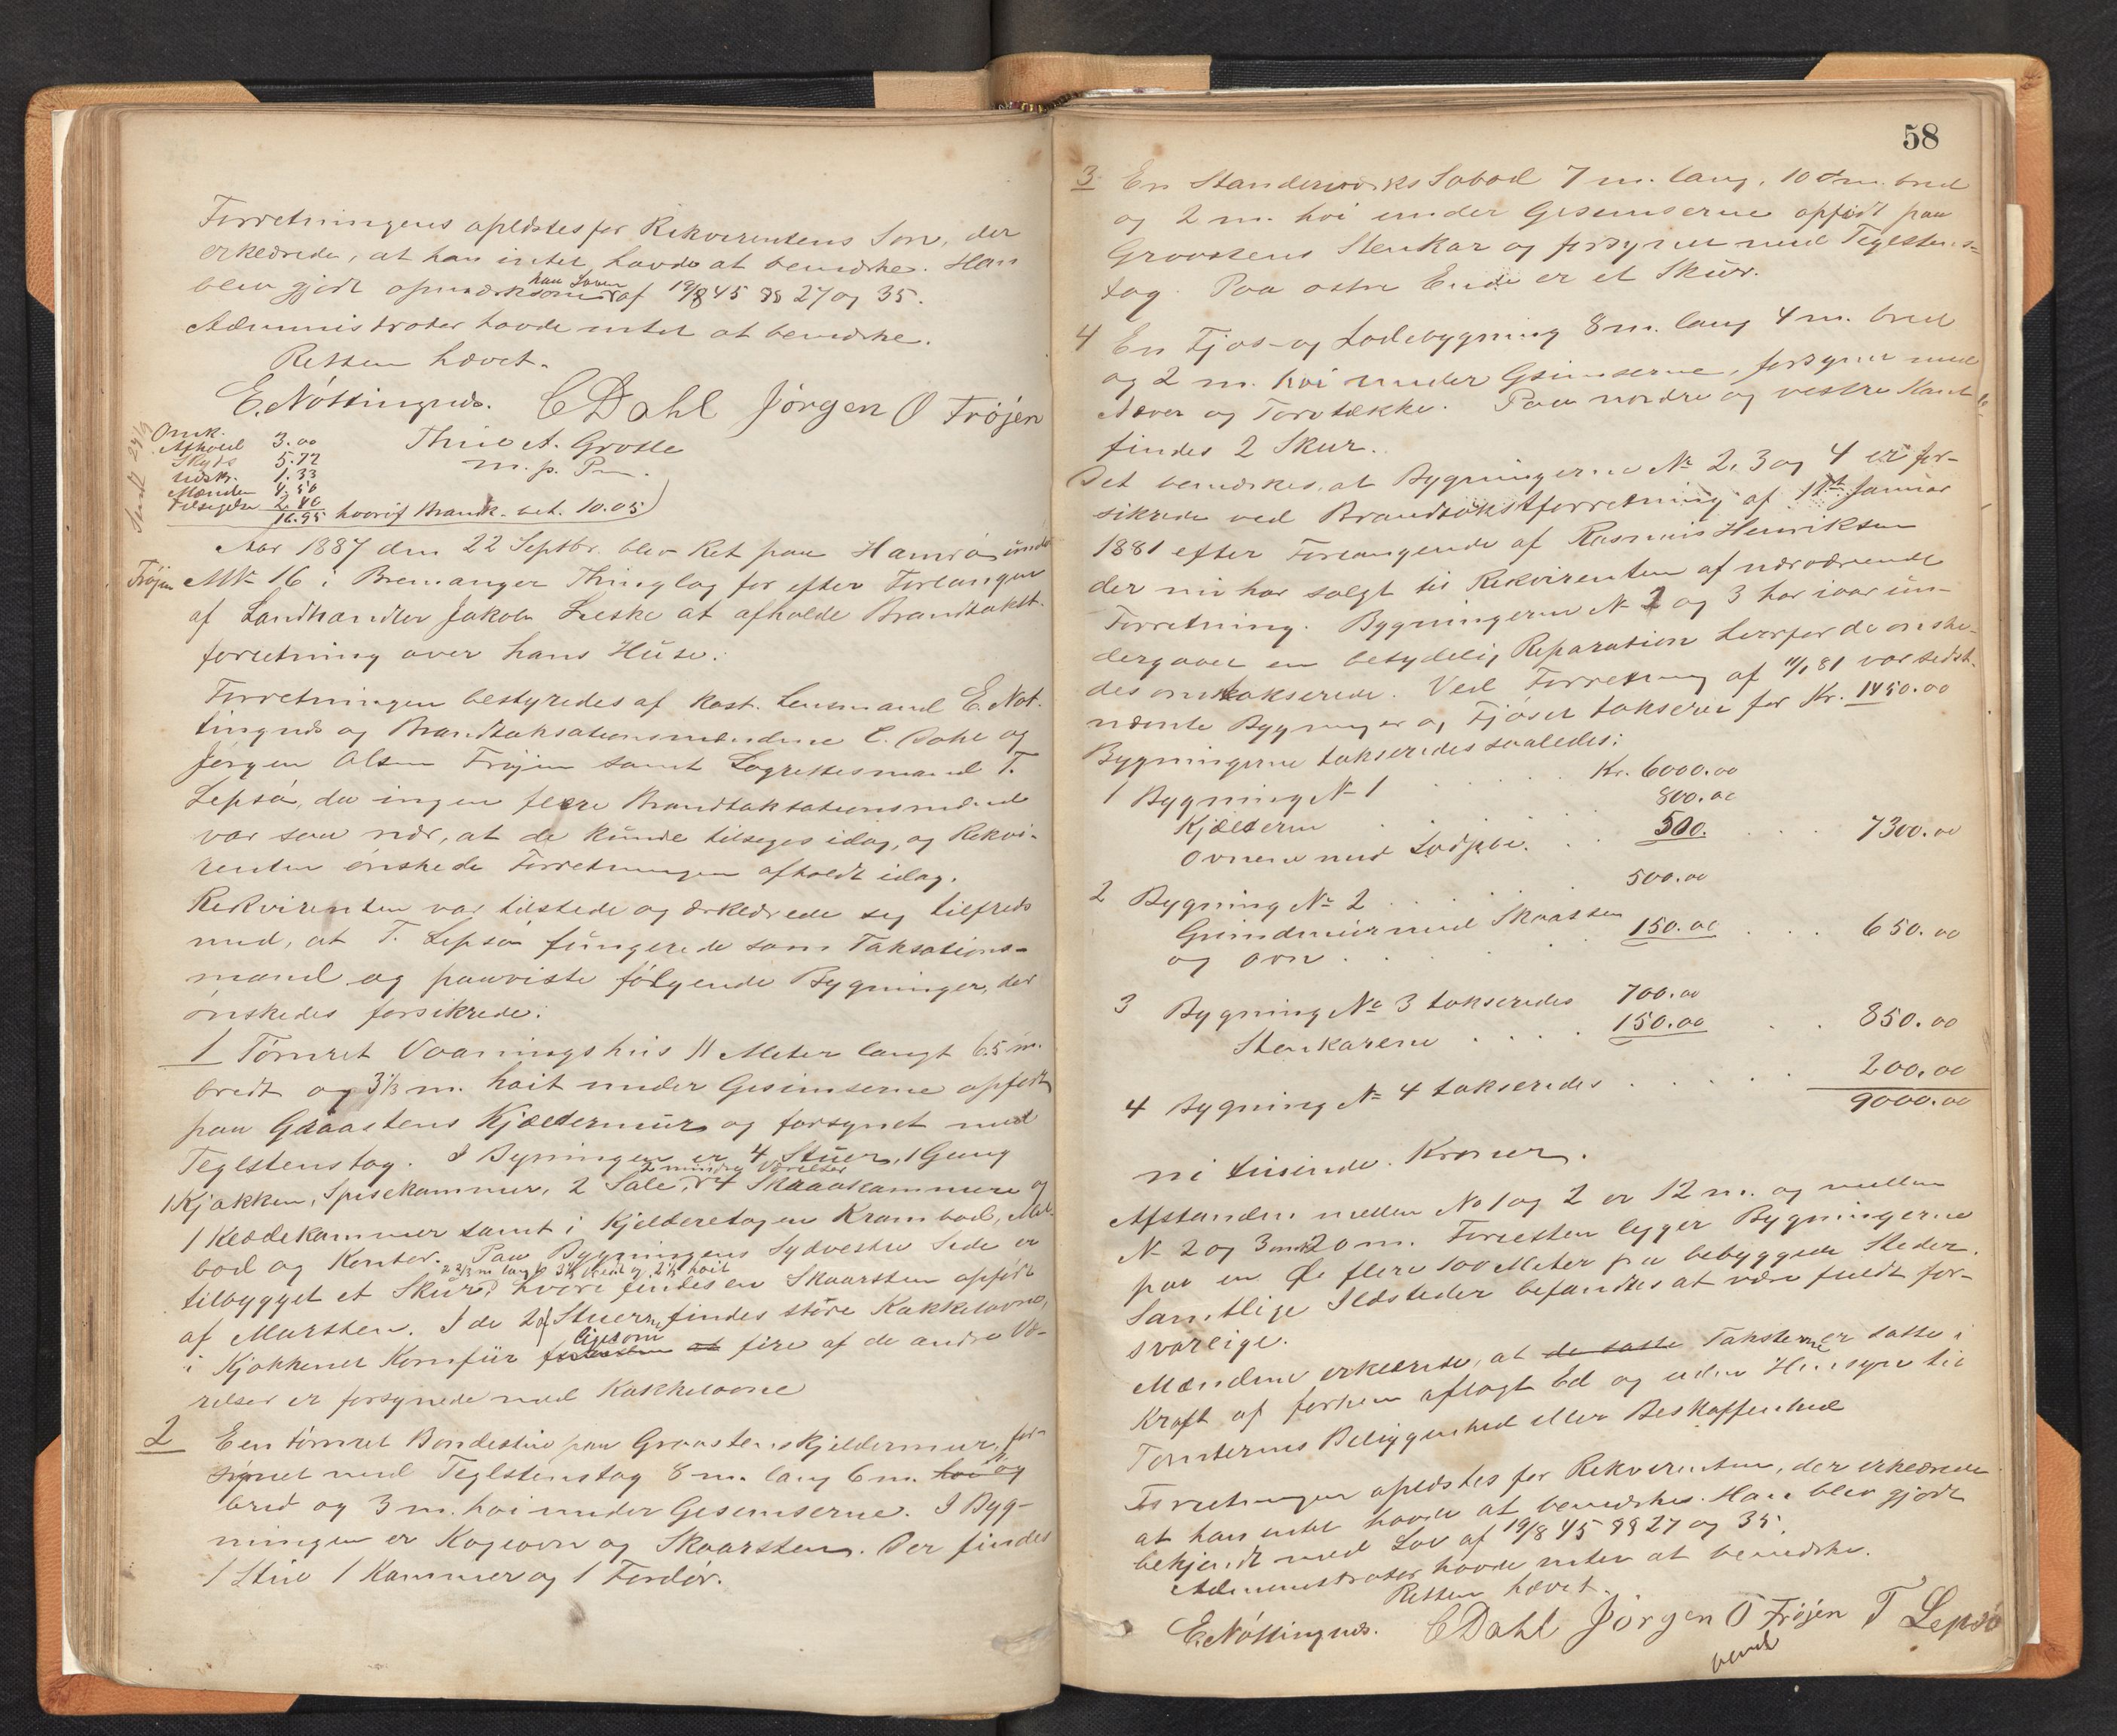 Forretningens oplæstes for Rekvirentens Søn, der
erklærede, at han intet havde at bemærke. Han
blev gjort opmærksom paa Loven af 19/8 45 §§ 27 og 35.
Administrator havde intet at bemærke.
Retten hævet.
E. Nøttingnæs. C Dahl Jørgen O Frøjen
Thue A. Grotle
m. p. P.
Omk.
Afhold 3.00
Skyds 5.72
Udskr. 1.33
Mænden 4.50
Tilsigelse 2.40
16.95 hvoraf Brandk. bet. 10.05
Sendt 24/9
Aar 1887 den 22 Septbr. blev Ret paa Hamrø under
Frøjen MNo 16 i Bremanger Thinglag for efter Forlangen
af Landhandler Jakob Leske at afholde Brandtakst-
forretning over hans Huse.
Forretningen bestyredes af kst. Lensmand E. Nøt-
tingnæs og Brandtaksationsmændene C. Dahl og
Jørgen Olsen Frøjen samt Lagrettesmand T.
Lepsø, da ingen flere Brandtaksationsmænd
var saa nær, at de kunde tilsiges idag, og Rekvi-
renten ønskede Forretningen afholdt idag.
Rekvirenten var tilstede og erklærede sig tilfreds
med, at T. Lepsø fungerede som Taksations-
mand og paaviste følgende Bygninger, der
ønskedes forsikrede:
1 Tømret Vaaningshus 11 Meter langt 6.5 m.
bredt og 3 1/3 m. høit under Gesimserne opført
paa Graastens Kjældermur og forsynet med
Teglstenstag. I Bygningen er 4 Stuer, 1 Gang
1 Kjøkken, Spisekammer, 2 Sale, 2 mindre Værelser 4 Skraakammere og
1 Klædekammer samt i Kjælderetagen Krambod, Mel-
bod og Kontor. Paa Bygningens Sydvestre Side er
tilbygget et Skur, 2 2/3 m lang 3 1/3 bred og 2 1/3 høit hvori findes en Skaarsten opført
af Mursten. I de 2 Stuerne findes større Kakkelovne,
i Kjøkkenet Komfür ligesom fire af de andre Væ-
relser er forsynede med Kakkelovne
2 Een tømret Bondestue paa Graastenskjældermur, for-
synet med Teglstenstag 8 m. lang 6 m. høi og
bred og 3 m. høi under Gesimserne. I Byg-
ningen er Kogeovn og Skaarsten. Der findes
1 Stue 1 Kammer og 1 Fordør.
58
3 En Standerværks Søbod 7 m. lang, 10 m. bred
og 2 m. høi under Gesimserne opført paa
Graastens Stenkar og forsynet med Teglstens-
tag. Paa østre Ende er et Skur.
4 En Fjøs- og Ladebygning 8 m. lang 4 m. bred
og 2 m. høi under Gsimserne, forsynet med
Næver og Torvtække. Paa nordre og vestre Kant
findes 2 Skur.
Det bemærkes, at Bygningerne No 2, 3 og 4 er for-
sikrede ved Brandtakstforretning af 11te Januar
1881 efter Forlangende af Rasmus Henriksen
der nu har solgt til Rekvirenten af nærværende
Forretning. Bygningerne No 2 og 3 har iaar un-
dergaaet en betydelig Reparation hvorfor de ønske-
des omtakserede. Ved Forretning af 11/1 81 var sidst-
nævnte Bygninger og Fjøset takseret for Kr. 1450.00
Bygningerne takseredes saaledes:
1 Bygning No 1 . . . Kr. 6000.00
Kjælderen . . . 800.00
Ovnene med Tilbehør . . 500. . . . 7300.00
2 Bygning No 2 . . . . 500.00
Grundmur med Skaarsten
og Ovn . . . 150.00 . . . 650.00
3 Bygning No 3 takseredes 700.00
Stenkarene . . . . 150.00 . . 850.00
4 Bygning No 4 takseredes . . . . . 200.00
9000.00
ni tusinde Kroner.
Afstanden mellem No 1 og 2 er 12 m. og mellem
No 2 og 3 omtr 20 m. Forresten ligger Bygningerne
paa en Ø flere 100 Meter fra bebyggede Steder.
Samtlige Ildsteder befandtes at være fuldt for-
svarlige.
Mændene erklærede, at de satte Taksterne er satte i
Kraft af forhen aflagt Ed og uden Hensyn til
Tomternes Beliggenhed eller Beskaffenhed
Forretningen oplæstes for Rekvirenten, der erklærede
at han intet havde at bemærke. Han blev gjort
bekjendt med Lov af 19/8 45 §§ 27 og 35.
Administrator havde intet at bemærke.
Retten hævet.
E. Nøttingnæs. C Dahl Jørgen O Frøjen T Lepsø